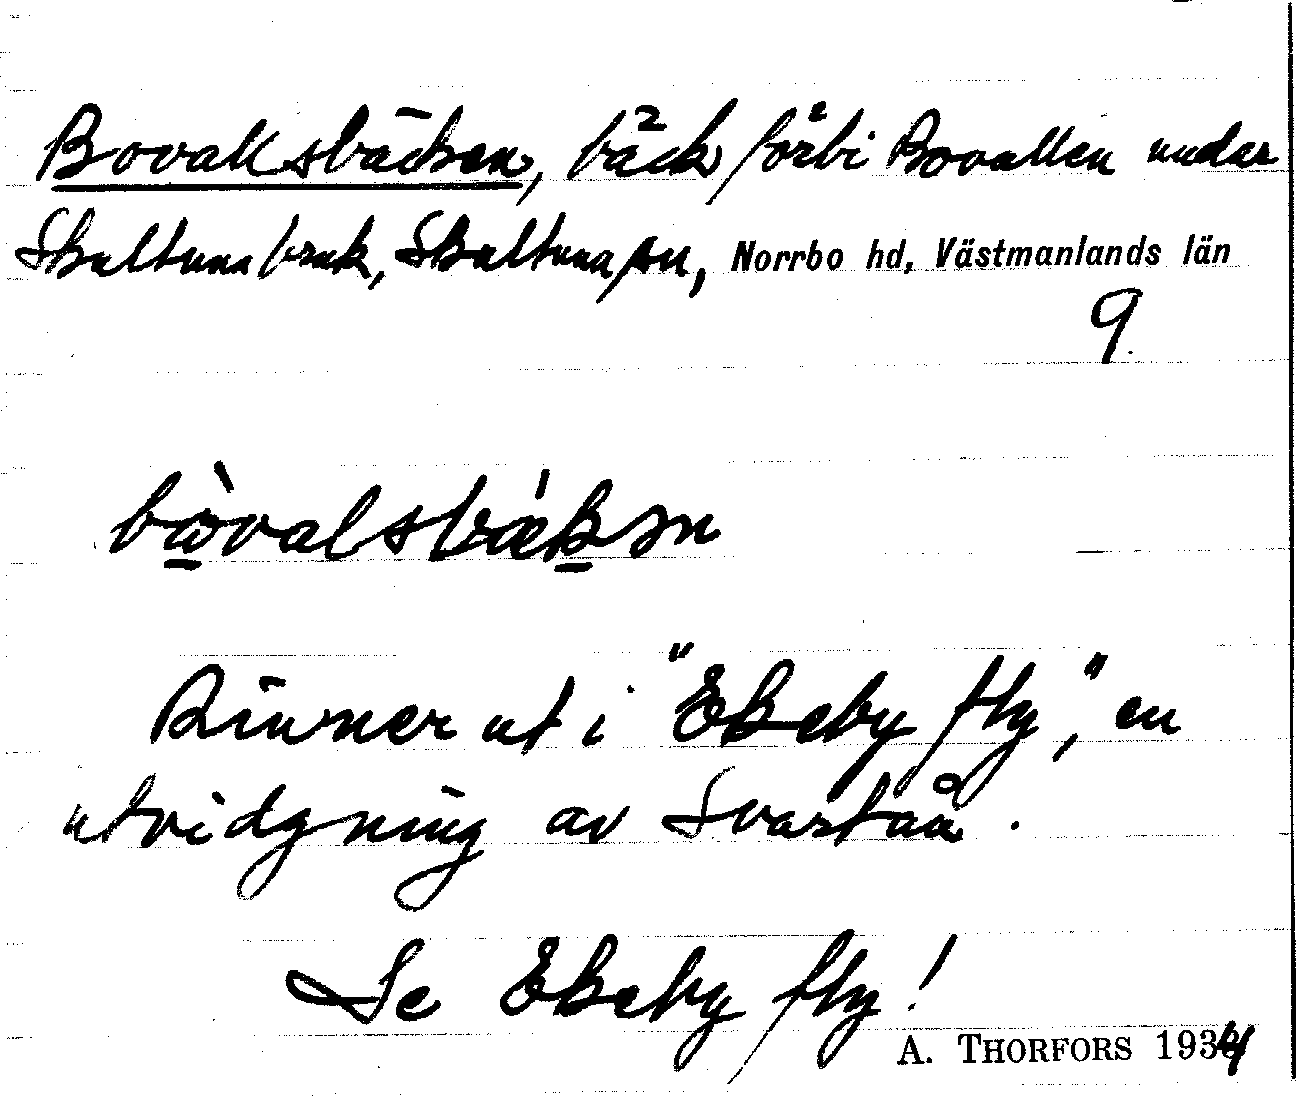 Bovallsbäcken, bäck förbi Bovallen under
Skultuna bruk, Skultuna sn, Norrbo hd, Västmanlands län
9.
bòvalsbækən
Rinner ut i "Ekeby fly", en
utvidgning av Svartån.
Se Ekeby fly!
A. THORFORS 1934